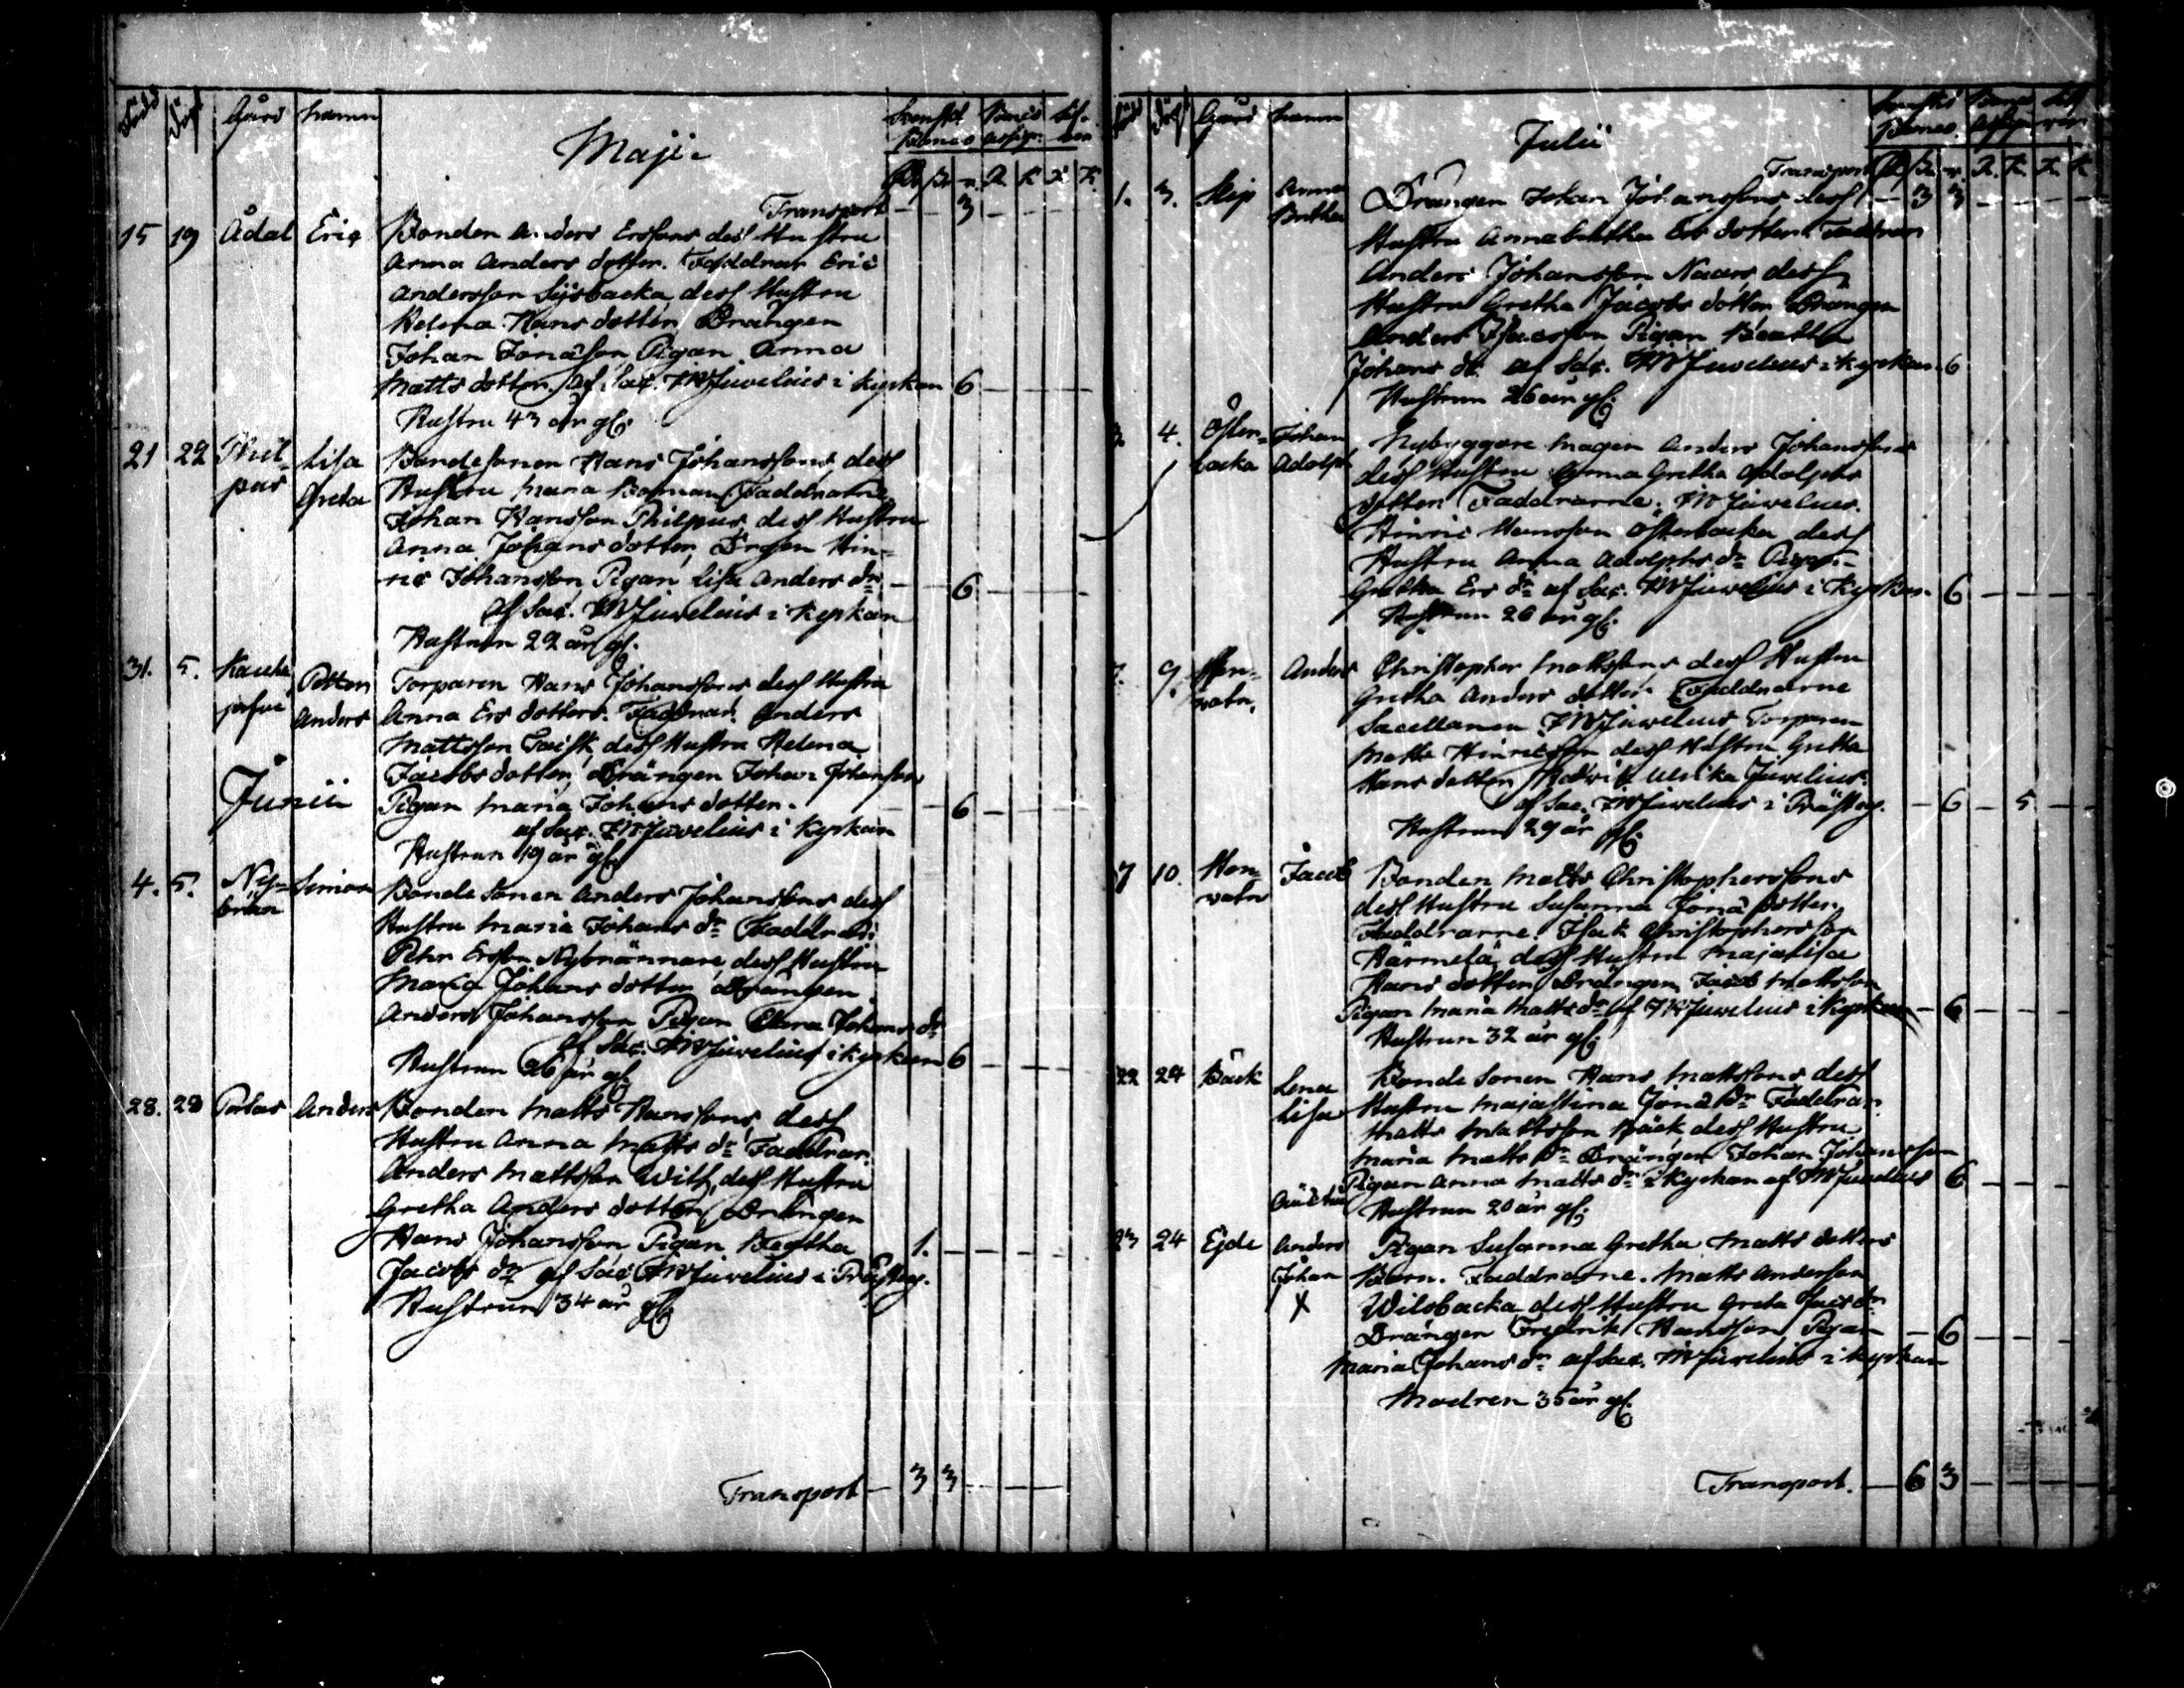 Född Döpt Gård namn Maji
Transport — — 3 — — —
15 19 Ådal Eric Bonden Anders Erssons dess Hustru
Anna Anders dotter. Faddrar Eric
Andersson Sijsbacka dess Hustru
Helena Hans dotter, Drängen
Johan Jonasson Pigan Anna
Matts dotter, af Sac. JWJuvelius i Kyrkan 6
Hustru 43 år gl:
21 22 Philpus Lisa Greta Bondesonen Hans Johanssons dess
Hustru Maria Faddrarne
Johan Hansson Philpus dess Hustru
Anna Johans dotter, Drgen Hin-
ric Johansson, Pigan Lisa Anders dr — 6
af Sac. JWJuvelius i Kyrkan
Hustrun 22 år gl:
31. 5. Petter Anders Torparen Hans Johanssons dess Hustru
Anna Ers dotters. Faddrar. Anders
Mattsson Taisk dess Hustru Helena
Jacobs dotter, Drängen Johan Johansson
Junii Pigan Maria Johans dotter. — 6 —
af Sac. JWJuvelius i Kyrkan
Hustrun 19 år gl:
4. 5. Ny-brän Simon Bonde Sonen Anders Johanssons dess
Hustru Maria Johans dr Faddrar:
Pehr Ersson Nybrännare dess Hustru
Maria Johans dotter, Drängen
Anders Johansson Pigan Clara Johans dr
af Sac. JWJuvelius i Kyrkan 6
Hustrun 26 år gl:
28. 29 Porkas Anders Bonden Matts Hanssons dess
Hustru Anna Matts dr Faddrar.
Anders Mattsson Witt, dess Hustru
Gretha Anders dotter, Drängen
Hans Johansson Pigan Beatha 1.
Jacobs dr af Sac JWJuvelius i Prästeg.
Hustrun 34 år gl:
Transport — 3 3 — — —
Gård namn Julii
Transport — 3 3 — — —
1. 3. Skip Anna Britha Drängen Johan Johanssons dess
Hustru Annabritha Ers dotter. Faddrar
Anders Johansson Naars dess
Hustru Gretha Jacobs dotter Drängen
Anders Isacsson Pigan Beatha
Johans dr. af Sac. JWJuvelius i Kyrkan. 6
Hustrun 26 år gl:
4. Öster-backa Johan Adolph Nybyggare Magen Anders Johanssons
dess Hustru Anna Gretha Adolphs
dotter. Faddrarne: JWJuvelius.
Hinric Hansson Österbacka dess
Hustru Anna Adolphs dr Pigan
Gretha Ers dr af Sac. JWJuvelius i Kyrkan. 6
Hustrun 26 år gl:
7. 9. Anders Christopher Mattssons dess Hustru
Gretha Anders dotter. Faddrarne
Sacellanen JWJuvelius Torparen
Matts Hinricsson dess Hustru Gretha
Hans dotter, Hedvik Ulrika Juvelius.
af Sac. JWJuvelius i Prästeg. — 6 — 5 —
Hustrun 29 år gl:
7 10. Jacob Bonden Matts Christopherssons
dess Hustru Susanna Jona dotter,
Faddrarne. Isak Christophersson
Härmelä, dess Hustru Majalisa
Hans dotter, Drängen Jacob Mattsson
Pigan Maria Matts dr af JWJuvelius i Kyrkan — 6 —
Hustrun 32 år gl:
22 24 Bäck Lena Lisa Bonde Sonen Hans Mattssons dess
Hustru Majastina Jona dr Faddrar
Matts Mattsson Bäck dess Hustru
Maria Matts dr Drängen Johan Johansson
Pigan Anna Matts dr i Kyrkan af JWJuvelius 6
Hustrun 20 år gl:
Oäckta
23 24 Ejde Anders Johan X Pigan Susanna Gretha Matts dotters
Barn. Faddrarne. Matts Andersson
Wilsbacka dess Hustru Greta dr
Drängen Fredrik Hansson Pigan — 6 —
Maria Johans dr af Sac. JWJuvelius i Kyrkan
Modren 35 år gl:
Transport. — 6 3 — — —